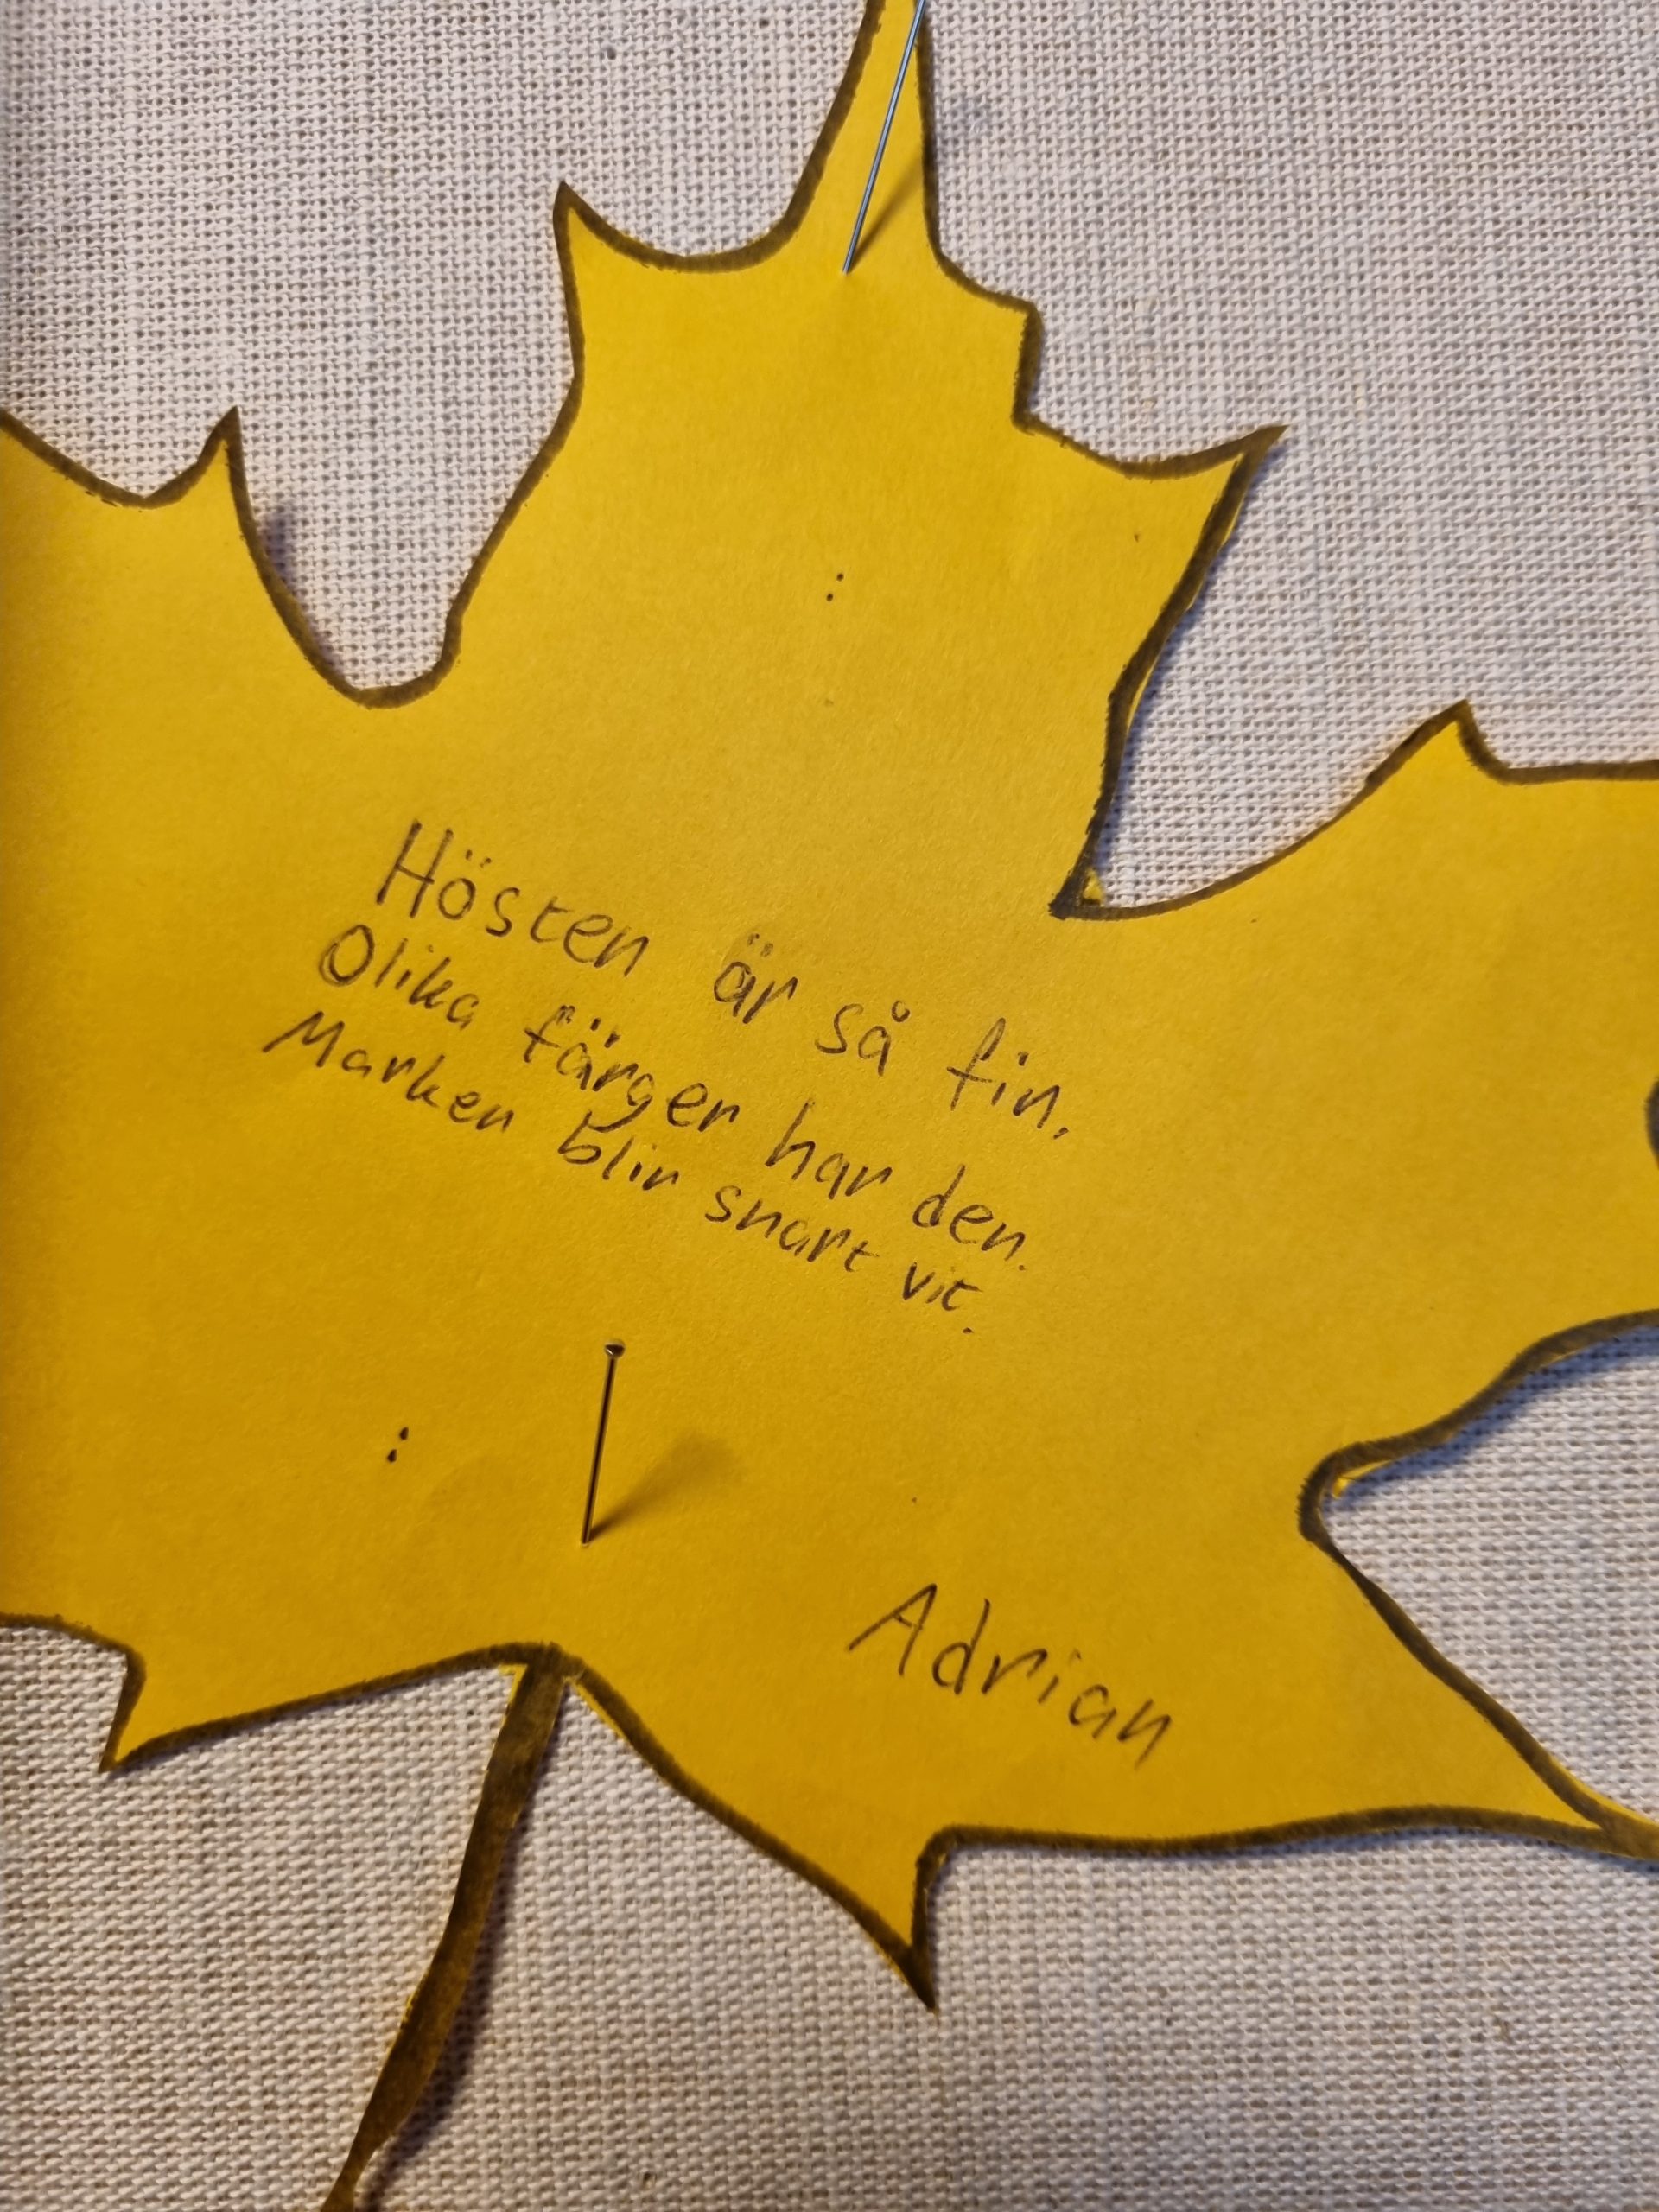 Hösten är så fin.
Olika färger har den.
Marken blir snart vit.
Adrian